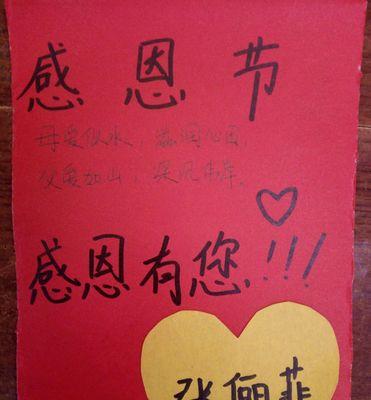 感恩节
母爱似水，滋润心田，
父爱如山，伟岸。
感恩有您!!!
张俪菲